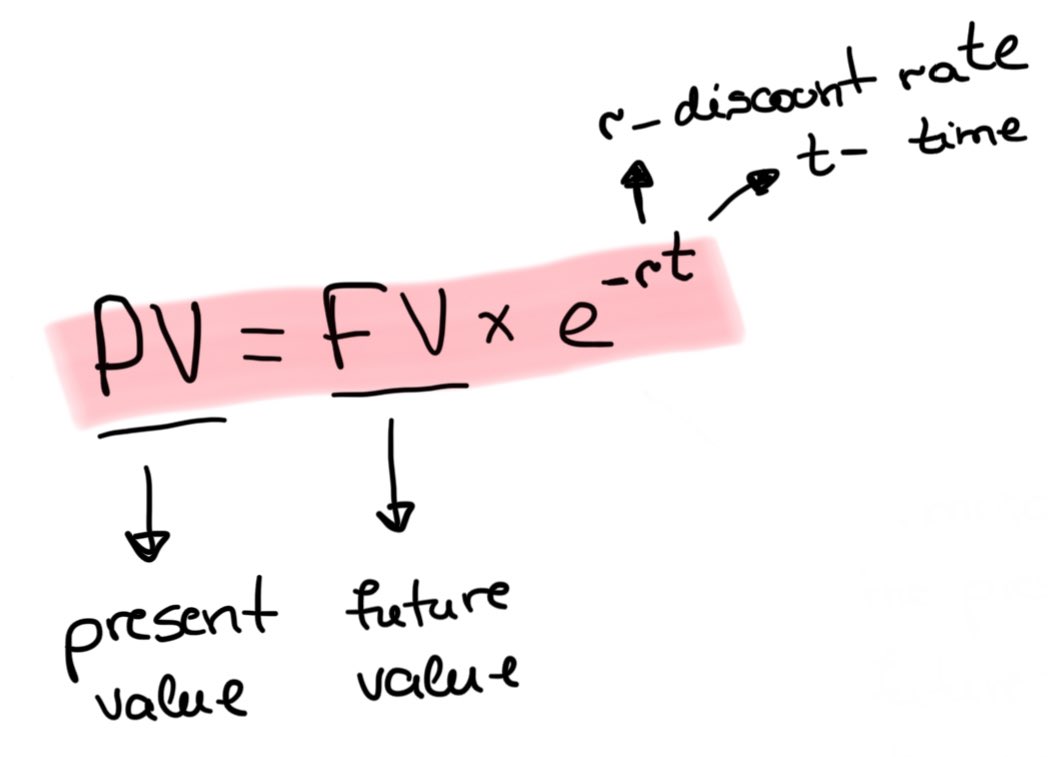 r - discount rate
t - time
PV = FV × e^-rt
present
value
future
value